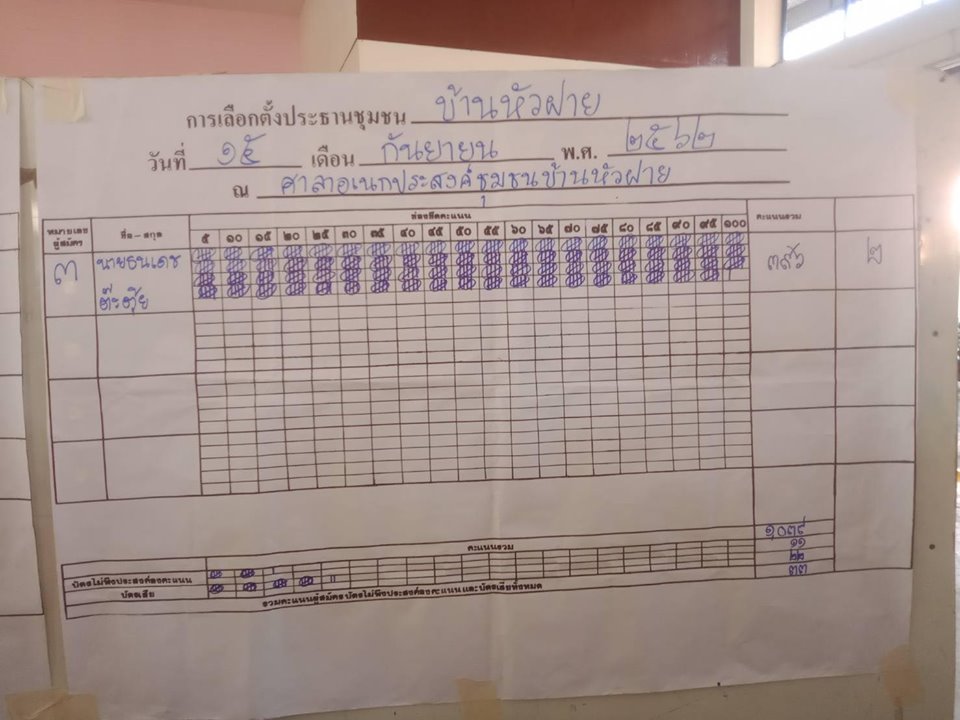 การเลือกตั้งประธานชุมชน บ้านหัวฝาย
วันที่ ๑๕ เดือน กันยายน พ.ศ. ๒๕๖๒
ณ ศาลาอเนกประสงค์ชุมชนบ้านหัวฝาย
หมายเลขผู้สมัคร ชื่อ-สกุล ช่องขีดคะแนน คะแนนรวม
๕ ๑๐ ๑๕ ๒๐ ๒๕ ๓๐ ๓๕ ๔๐ ๔๕ ๕๐ ๕๕ ๖๐ ๖๕ ๗๐ ๗๕ ๘๐ ๘๕ ๙๐ ๙๕ ๑๐๐
๓ นายธนเดช ๒
ต๊ะตุ้ย
คะแนนรวม ๑๐๓๙
บัตรไม่พึงประสงค์ลงคะแนน ๑๑
บัตรเสีย ๒๒
รวมคะแนนผู้สมัครบัตรไม่พึงประสงค์ลงคะแนนและบัตรเสียทั้งหมด ๓๓